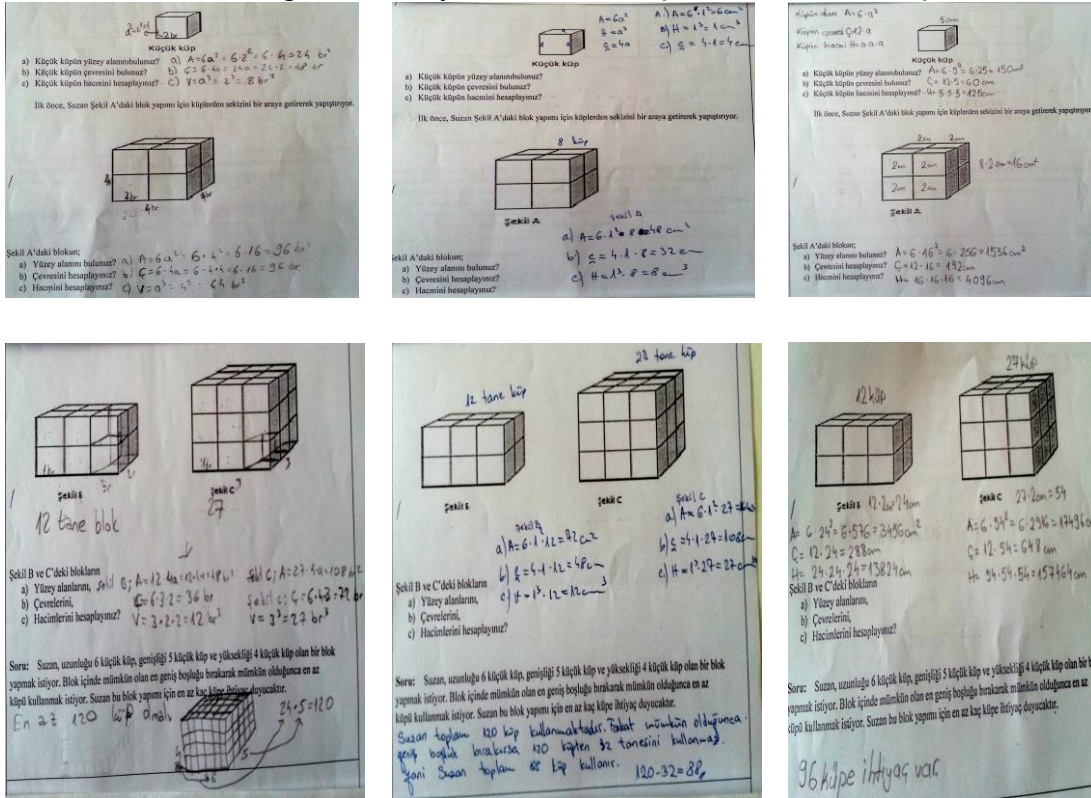 2br
Küçük küp
a) Küçük küpün yüzey alanını bulunuz? a) A=6a²=6·2²=6·4=24 br²
b) Küçük küpün çevresini bulunuz? b) Ç=6·4a=24a=24·2=48 br
c) Küçük küpün hacmini hesaplayınız? c) V=a³=2³=8 br³
İlk önce, Suzan Şekil A'daki blok yapımı için küplerden sekizini bir araya getirerek yapıştırıyor.
2br
4br
Şekil A'daki blokun;
a) Yüzey alanını bulunuz? a) A=6a²=6·4²=6·16=96 br²
b) Çevresini hesaplayınız? b) Ç=6·4a=6·4·4=6·16=96 br
c) Hacmini hesaplayınız? c) V=a³=4³=64 br³
A=6a²
H=a³
Ç=4a
A) A=6·1²=6cm²
B) H=1³=1cm³
C) Ç=4·1=4cm
Küçük küp
a) Küçük küpün yüzey alanını bulunuz?
b) Küçük küpün çevresini bulunuz?
c) Küçük küpün hacmini hesaplayınız?
İlk önce, Suzan Şekil A'daki blok yapımı için küplerden sekizini bir araya getirerek yapıştırıyor.
8 küp
Şekil A
Şekil A
a) A=6·1²·8=48 cm²
b) Ç=4·1·8=32 cm
c) H=1³·8=8 cm³
Şekil A'daki blokun;
a) Yüzey alanını bulunuz?
b) Çevresini hesaplayınız?
c) Hacmini hesaplayınız?
Küpün alanı A=6·a²
Küpün çevresi Ç=12·a
Küpün hacmi H=a·a·a
5cm
Küçük küp
a) Küçük küpün yüzey alanını bulunuz? A=6·5²=6·25=150cm²
b) Küçük küpün çevresini bulunuz? Ç=12·5=60cm
c) Küçük küpün hacmini hesaplayınız? H=5·5·5=125cm
İlk önce, Suzan Şekil A'daki blok yapımı için küplerden sekizini bir araya getirerek yapıştırıyor.
2cm 2cm
2cm 2cm
2cm 2cm
8·2cm=16cm²
Şekil A
Şekil A'daki blokun;
a) Yüzey alanını bulunuz? A=6·16²=6·256=1536cm²
b) Çevresini hesaplayınız? Ç=12·16=192cm
c) Hacmini hesaplayınız? H=16·16·16=4096cm
Şekil B
Şekil C
12 tane blok
27
Şekil B ve C'deki blokların
a) Yüzey alanlarını, şekil B; A=12·4a=12·4=48br² şekil C; A=27·4a=108br²
b) Çevrelerini, Ç=6·3·2=36 br şekil C; Ç=6·4·3=72 br
c) Hacimlerini hesaplayınız? V=3·2·2=12 br³ V=3³=27 br³
Soru: Suzan, uzunluğu 6 küçük küp, genişliği 5 küçük küp ve yüksekliği 4 küçük küp olan bir blok
yapmak istiyor. Blok içinde mümkün olan en geniş boşluğu bırakarak mümkün olduğunca en az
küpü kullanmak istiyor. Suzan bu blok yapımı için en az kaç küpe ihtiyaç duyucaktır.
En az 120 küp
24·5=120
4
5
6
12 tane küp
Şekil B
Şekil C
Şekil B
a) A=6·1·12=72cm²
b) Ç=4·1·12=48cm
c) H=1³·12=12cm³
Şekil C
a) A=6·1²·27=
b) Ç=4·1·27=108cm
c) H=1³·27=27cm³
Şekil B ve C'deki blokların
a) Yüzey alanlarını,
b) Çevrelerini,
c) Hacimlerini hesaplayınız?
Soru: Suzan, uzunluğu 6 küçük küp, genişliği 5 küçük küp ve yüksekliği 4 küçük küp olan bir blok
yapmak istiyor. Blok içinde mümkün olan en geniş boşluğu bırakarak mümkün olduğunca en az
küpü kullanmak istiyor. Suzan bu blok yapımı için en az kaç küpe ihtiyaç duyucaktır.
Suzan toplam 120 küp kullanmaktadır. Fakat mümkün olduğunca
geniş boşluk bırakırsa 120 küpten 32 tanesini kullanmaz.
Yani Suzan toplam 88 küp kullanır. 120-32=88
12 küp
27 küp
Şekil B 12·2cm=24cm
Şekil C 27·2cm=54
A=6·24²=6·576=3456cm²
Ç=12·24=288cm
H=24·24·24=13824cm
A=6·54²=6·2916=17496cm
Ç=12·54=648cm
H=54·54·54=157464cm
Şekil B ve C'deki blokların
a) Yüzey alanlarını,
b) Çevrelerini,
c) Hacimlerini hesaplayınız?
Soru: Suzan, uzunluğu 6 küçük küp, genişliği 5 küçük küp ve yüksekliği 4 küçük küp olan bir
yapmak istiyor. Blok içinde mümkün olan en geniş boşluğu bırakarak mümkün olduğunca en az
küpü kullanmak istiyor. Suzan bu blok yapımı için en az kaç küpe ihtiyaç duyucaktır.
96 küpe ihtiyaç var.